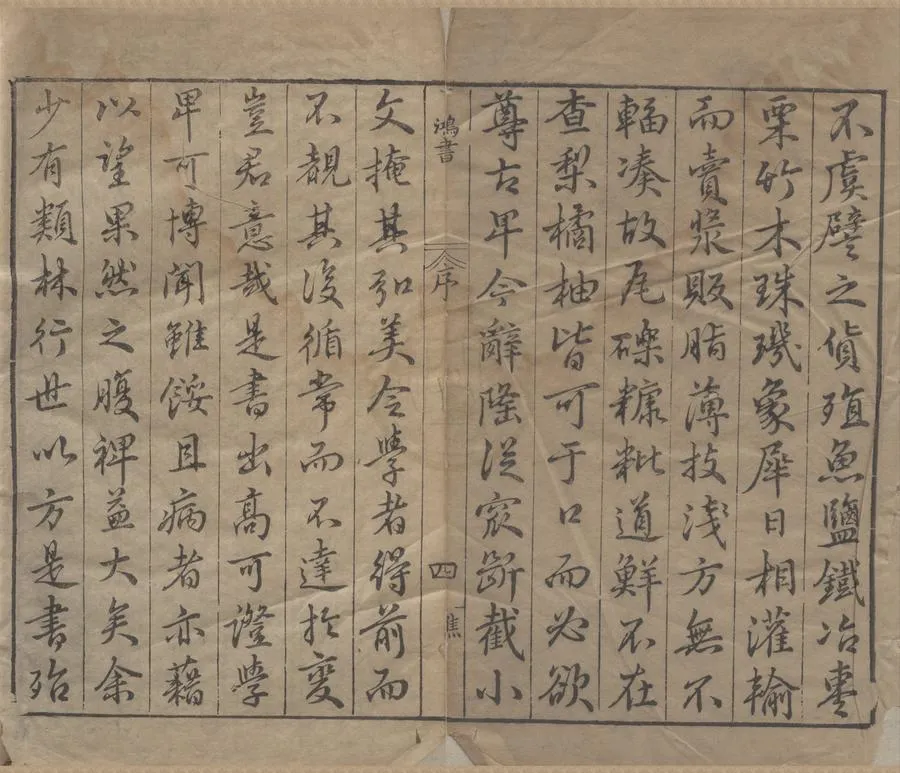 不虞譬之貨殖魚鹽鐵冶棗
栗竹木珠璣象犀日相灌輸
而賣漿販脂薄技淺方無不
輻湊故瓦礫糠粃道鮮不在
查梨橘柚皆可于口而必欲
尊古卑今辭隆從窽斷截小
鴻書
序
四
焦
文掩其弘美令學者得前而
不覩其後循常而不達於變
豈君意哉是書出高可證學
卑可博聞雖餒且病者亦藉
以望果然之腹裨益大矣余
少有類林行世以方是書殆